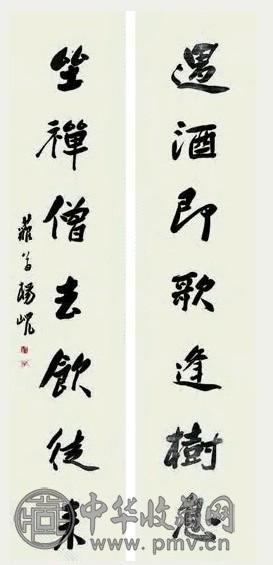 遇酒即歌逢樹
坐禪僧去飲徒來
藐翁楊峴
中华收藏网
www.pmv.cn